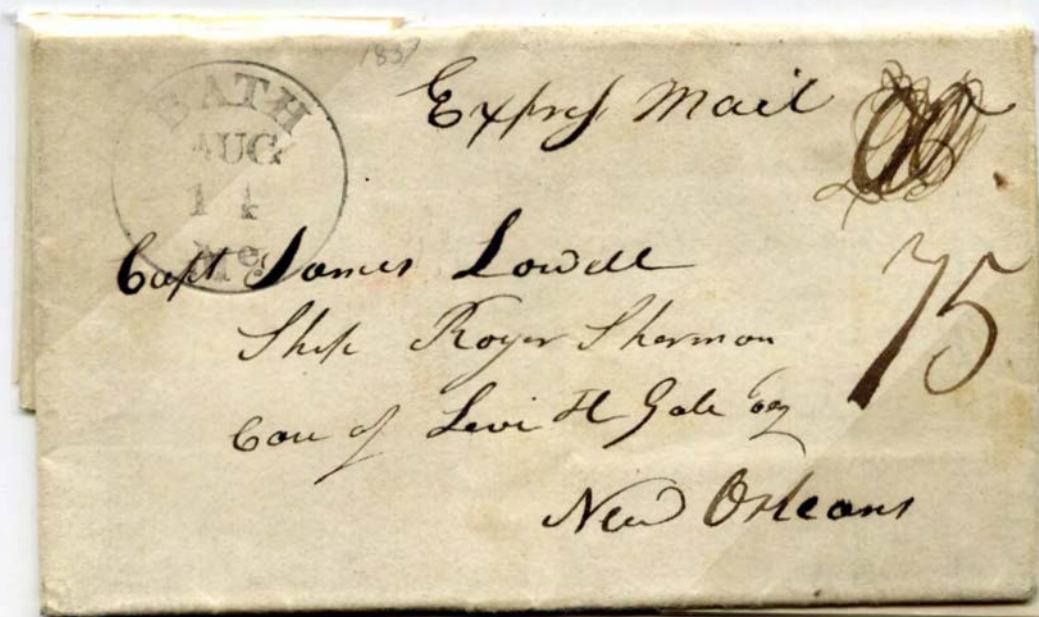 1837
BATH
AUG
14
Me
Express Mail
75
Capt James Lowell
Ship Roger Sherman
Care of Levi H Gale Esq
New Orleans